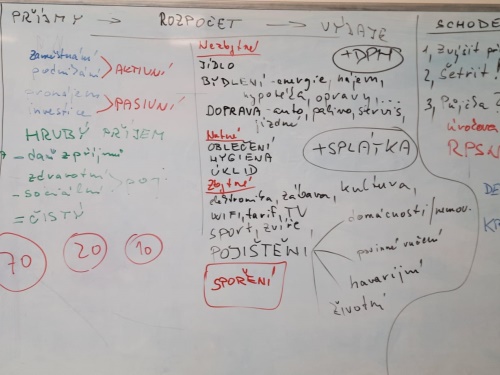 PŘÍJMY → ROZPOČET → VÝDAJE
zaměstnání
podnikání
AKTIVNÍ
pronájem
investice
PASIVNÍ
HRUBÝ PŘÍJEM
- daň z příjmů
- zdravotní
- sociální
poj.
= ČISTÝ
70 20 10
Nezbytné
JÍDLO
+DPH
BYDLENÍ - energie, nájem,
hypotéka, opravy, ...
DOPRAVA - auto, palivo, servis,
jízdné
Nutné
OBLEČENÍ
HYGIENA
ÚKLID
+SPLÁTKA
Zbytné
elektronika, zábava, kultura,
WIFI, tarif, TV
SPORT, zvíře,
POJIŠTĚNÍ
domácnosti/nemov.
povinné ručení
havarijní
životní
SPOŘENÍ
SCHODE
1, Zvýšit př
2, Šetřit
3, Půjčka
úroková
RPSN